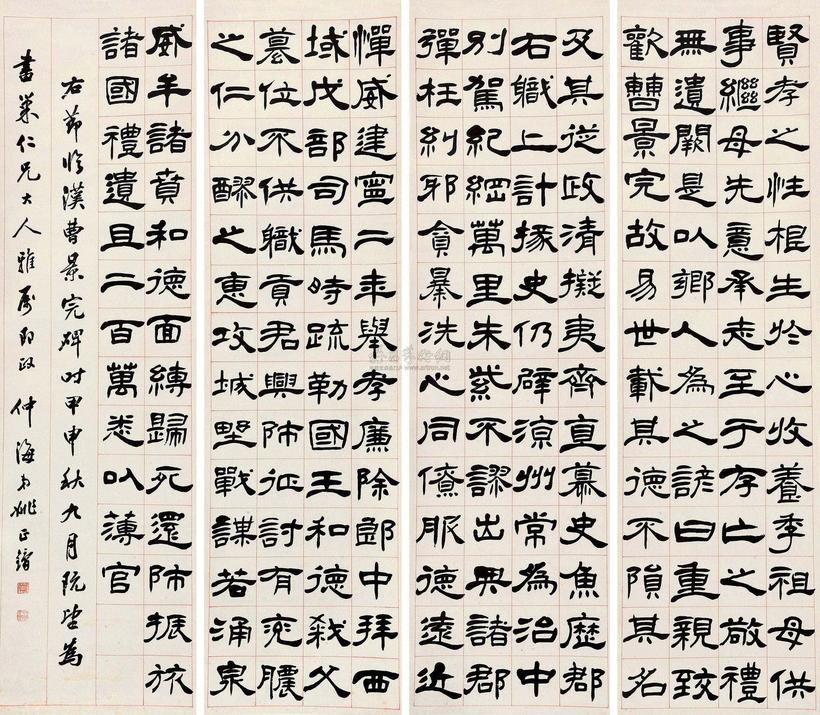 賢孝之性根生於心收養季祖母供
事繼母先意承志至于存亡之敬禮
無遺闕是以鄉人為之諺曰重親致
歡曹景完故易世載其德不隕其名
及其從政清擬夷齊直慕史魚歷郡
右職上計掾史仍辟涼州常為治中
別駕紀綱萬里朱紫不謬出典諸郡
彈枉糾邪貪暴洗心同僚服德遠近
憚威建寧二年舉孝廉除郎中拜西
域戊部司馬時疏勒國王和德弒父
篡位不供職貢君興師征討有兗膿
之仁分醪之惠攻城野戰謀若涌泉
威牟諸賁和德面縛歸死還師振旅
諸國禮遺且二百萬悉以薄官
右節臨漢曹景完碑時甲申秋九月既望為
書葉仁兄大人雅屬即政 仲海弟姚正鏞